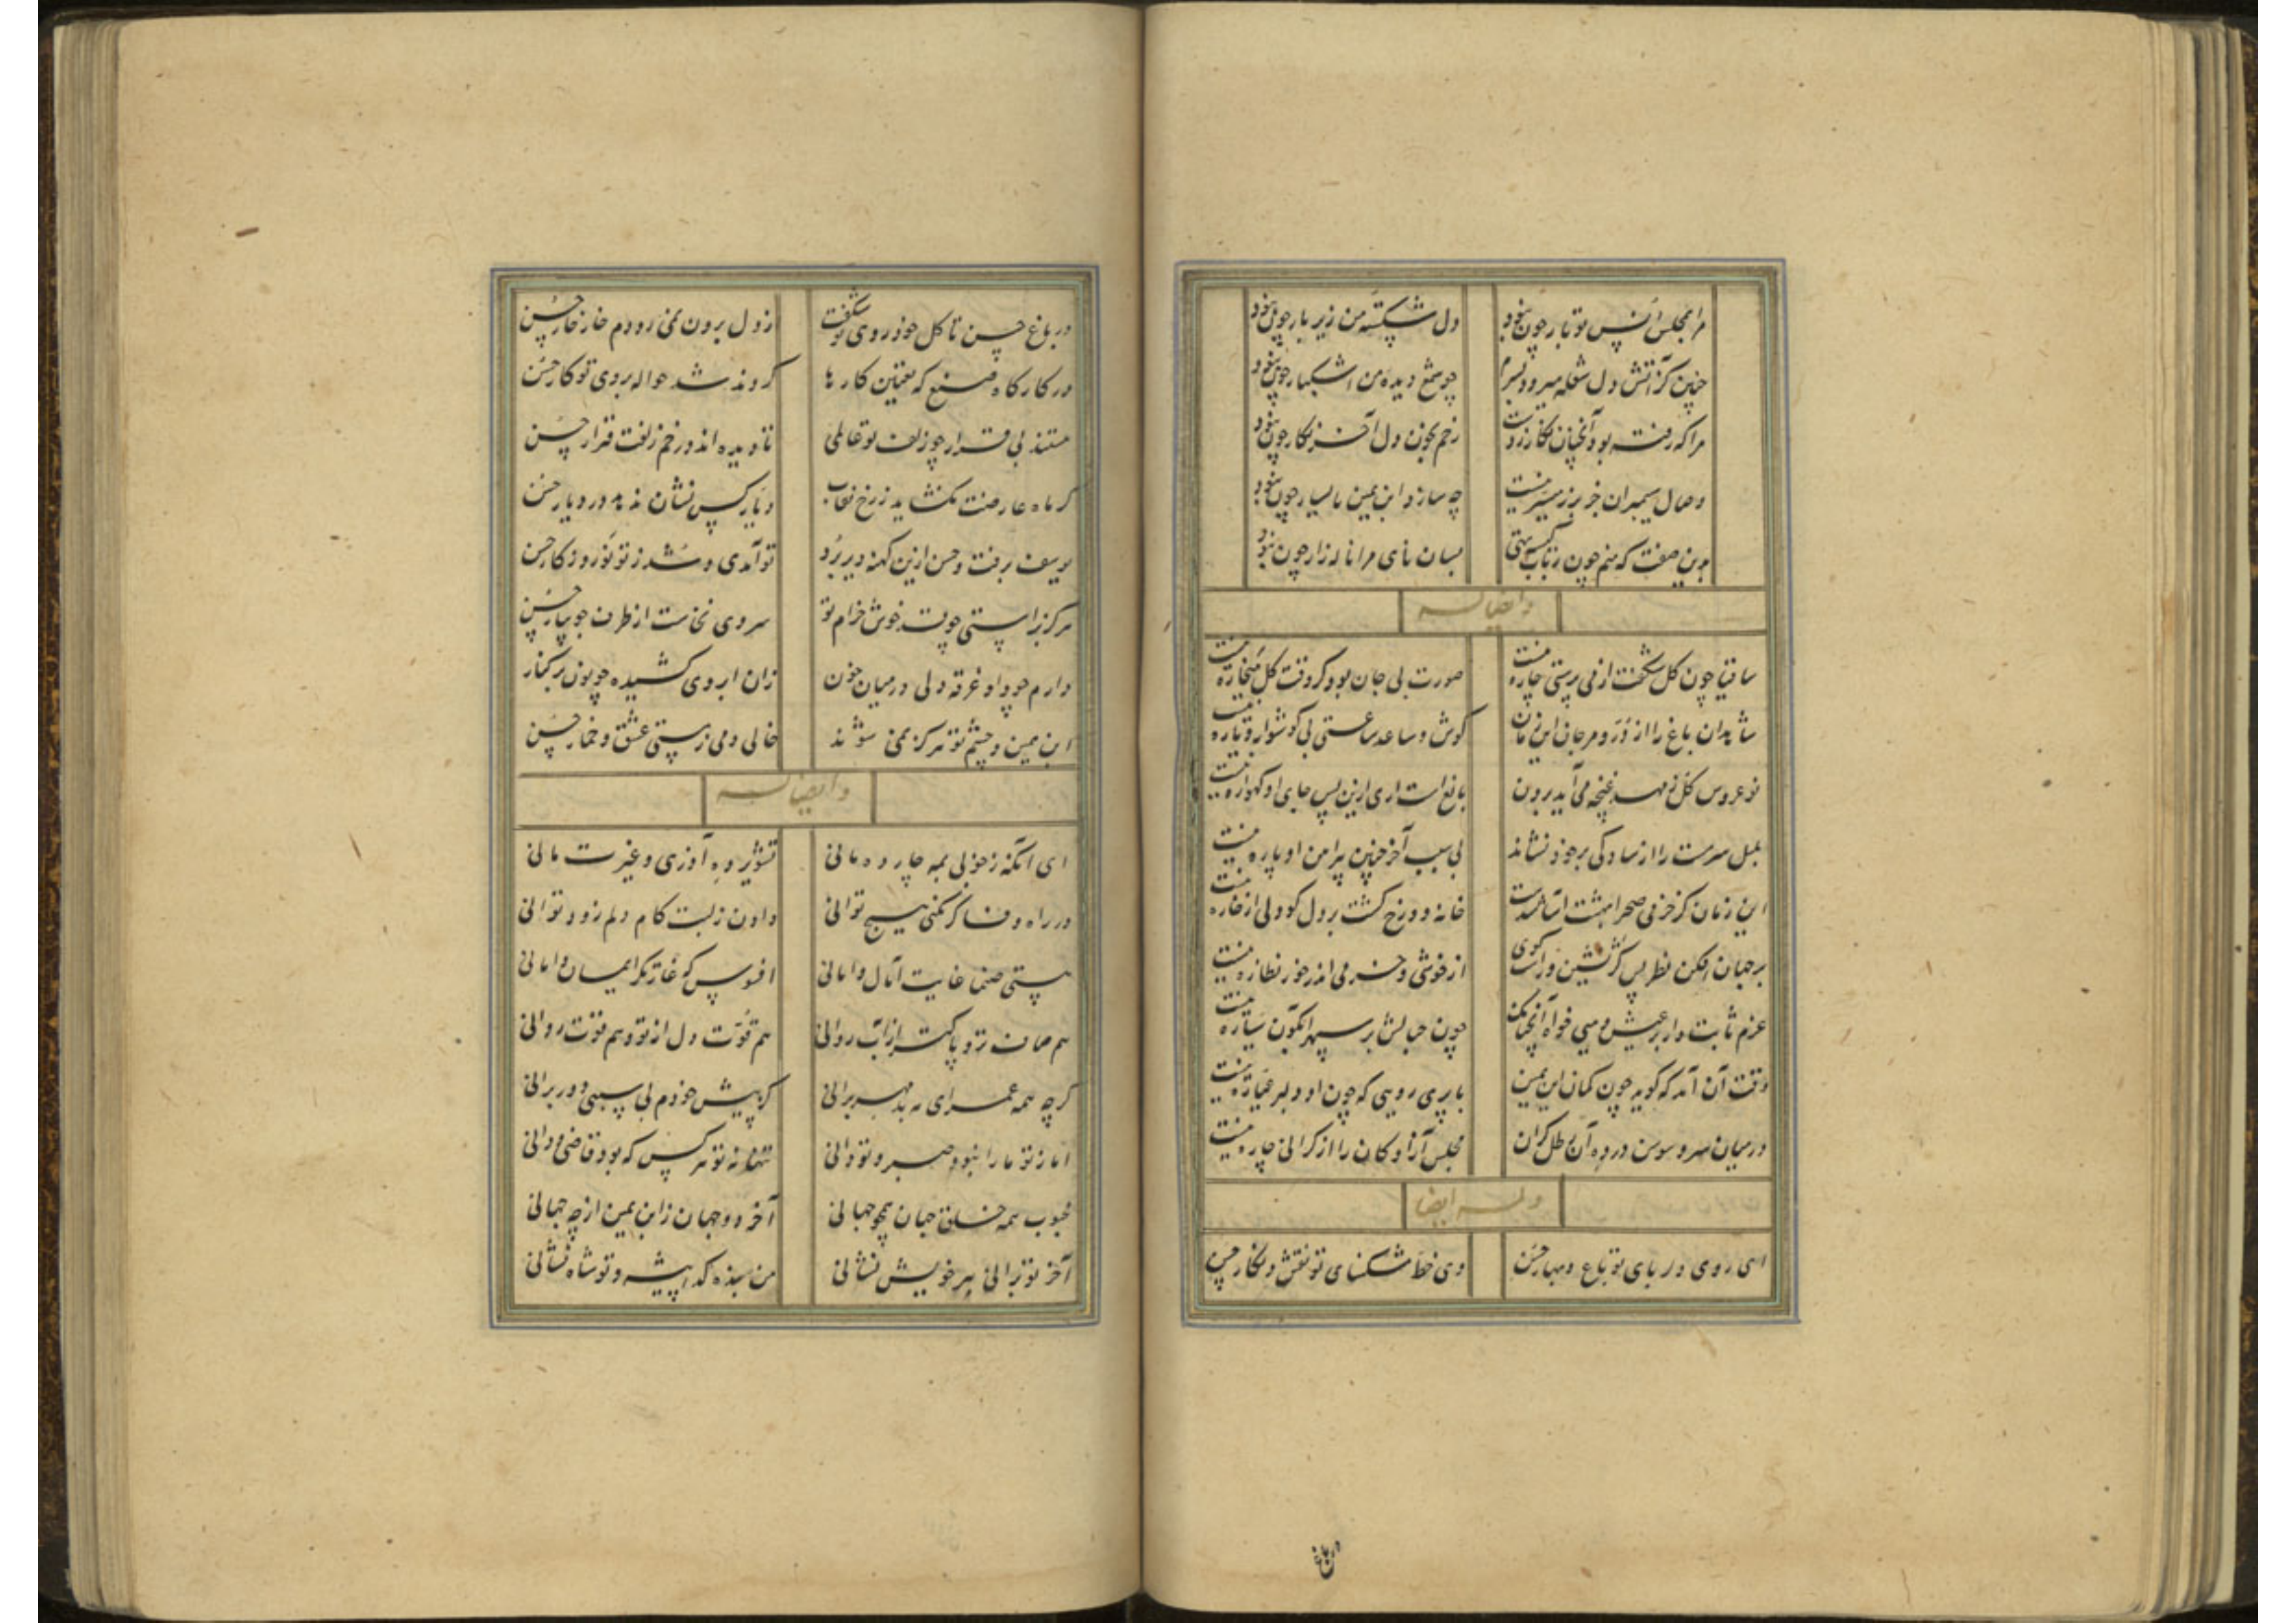 مرا بمجلس انس تو بار چون نبود دل شکسته من زیر بار چون نبود
چنین کز آتش دل شعله میرود بسرم چو شمع دیده من اشکبار چون نبود
مرا که رفته بود آنچنان نگار ز دست رخم بخون دل آخر نگار چون نبود
وصال سیمبران جز بزر میسر نیست چه سازد ابن یمین با یسار چون نبود
بدین صفت که منم چون رباب بسان نای مرا ناله زار چون نبود
و ایضا له
ساقیا چون گل شکفت از می پرستی چاره نیست صورت بی جان بود کو وقت گل میخواره نیست
شاهدان باغ را از در و مرجان این زمان گوش و ساعد ساعتی بی گوشوار و یاره نیست
نو عروس گل ز مهد غنچه می آید برون بالغ است آری ازین پس جای او گهواره نیست
بلبل سرمست را از سادگی بر خود نشاند بی سبب آخر چنین پیرامن او پاره نیست
این زمان کز خرمی صحرا بهشت آسا شدست خانه دوزخ گشت بر دل کو دلی از خاره نیست
بر جهان افکن نظر پس کژ نشین و راست گوی از خوشی و خرمی اندر خور نظاره نیست
عزم ثابت دار بر عیش و میی خواه آنچنانک چون حبابش بر سپهر آبگون سیاره نیست
وقت آن آمد که گوید چون کمان ابن یمین با پری رویی که چون او دلبر عیاره نیست
در میان سرو و سوسن در ده آن رطل گران مجلس آزادگان را از گرانی چاره نیست
وله ایضا
ای روی دلربای تو باغ و بهار حسن وی خط مشکسای تو نقش و نگار حسن
در باغ
در باغ حسن تا گل خود روی تو شکفت از دل برون نمی رودم خار خار حسن
در کارگاه صنع که تعیین کارها کردند شد حواله بروی تو کار حسن
هستند بی قرار چو زلف تو عالمی تا دیده اند در خم زلفت قرار حسن
گر ماه عارضت نگشاید ز رخ نقاب دیار کس نشان ندهد در دیار حسن
یوسف برفت و حسن ازین کهنه دیر برد تو آمدی و شد ز تو نو روزگار حسن
هرگز براستی چو قد خوش خرام تو سروی نخاست از طرف جویبار حسن
دارم چو واو غرقه دلی در میان خون زان ابروی کشیده چو نون بر کنار
ابن یمین و چشم تو هرگز نمی شوند خالی دمی ز مستی عشق و خمار حسن
و ایضا له
ای آنکه ز خوبی بمه چارده مانی تشویر ده آزری و غیرت مانی
در راه وفا گر نکنی هیچ توانی دادن ز لبت کام دلم زود توانی
هستی صنما غایت آمال و امانی افسوس که غارتگر ایمان و امانی
هم صاف تر و پاکتر از آب روانی هم قوت دل از تو و هم قوت روانی
گرچه همه عمر ای مه بدمهر برانی کز پیش خودم بی سببی دور برانی
اما ز تو ما را نبود صبر و تو دانی تنها نه تو هر کس که بود قاصی و دانی
محبوب همه خلق جهان همچو جهانی آخر دو جهان ز ابن یمین از چه جهانی
آخر تو برانی بر خویش نشانی من بنده گدا پیشه و تو شاه نشانی